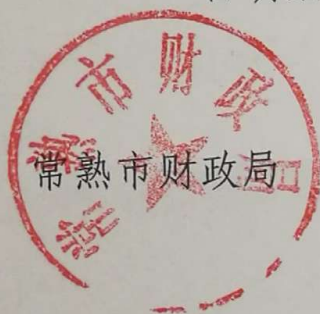 常熟市财政局
常熟市财政局